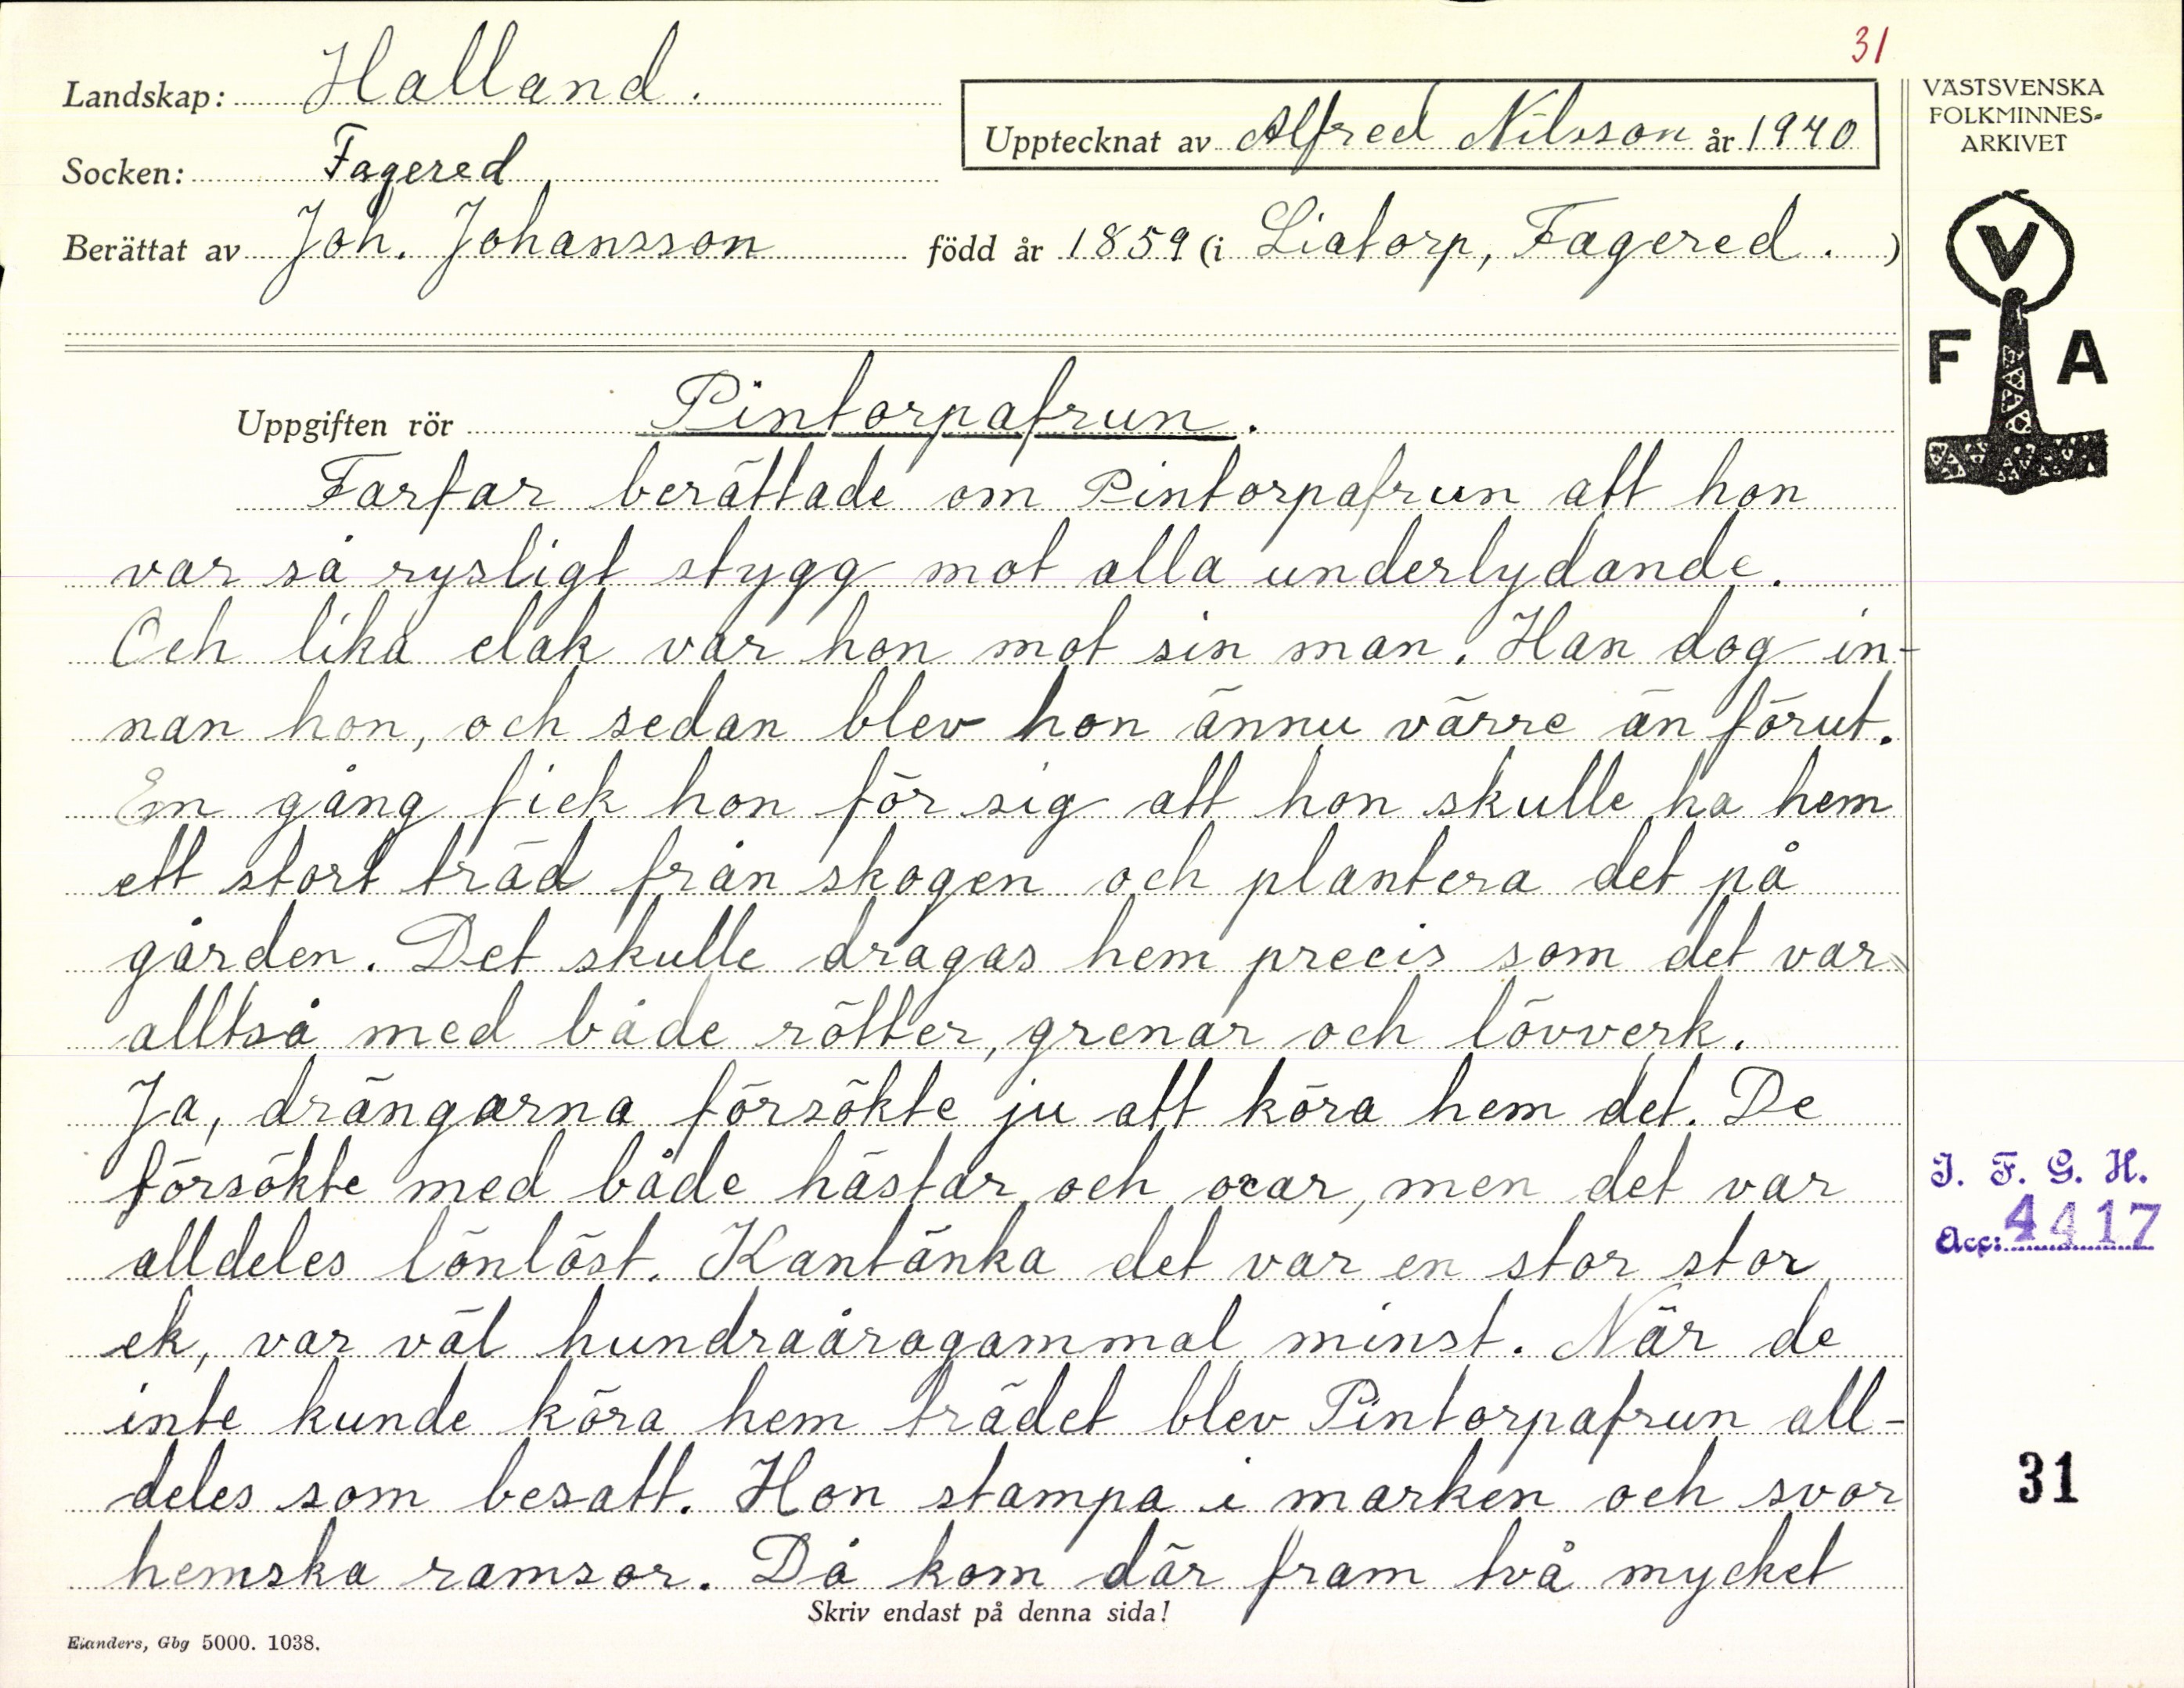 31
Landskap: Halland.
VÄSTSVENSKA
FOLKMINNES-
ARKIVET
Upptecknat av Alfred Nilsson år 1940
Socken: Fagered
Berättat av Joh. Johansson född år 1859 (i Liatorp, Fagered. )
V
F A
Uppgiften rör Pintorpafrun.
Farfar berättade om Pintorpafrun att hon
var så rysligt stygg mot alla underlydande.
Och lika elak var hon mot sin man. Han dog in-
nan hon, och sedan blev hon ännu värre än förut.
En gång fick hon för sig att hon skulle ha hem
ett stort träd från skogen och plantera det på
gården. Det skulle dragas hem precis som det var,
alltså med både rötter, grenar och lövverk.
Ja, drängarna försökte ju att köra hem det. De
försökte med både hästar och oxar, men det var
alldeles lönlöst. Kantänka det var en stor stor
ek, var väl hundraåragammal minst. När de
inte kunde köra hem trädet blev Pintorpafrun all-
deles som besatt. Hon stampa i marken och svor
hemska ramsor. Då kom där fram två mycket
I. F. G. H.
Acc: 4417
31
Skriv endast på denna sida!
Elanders, Gbg 5000. 1038.